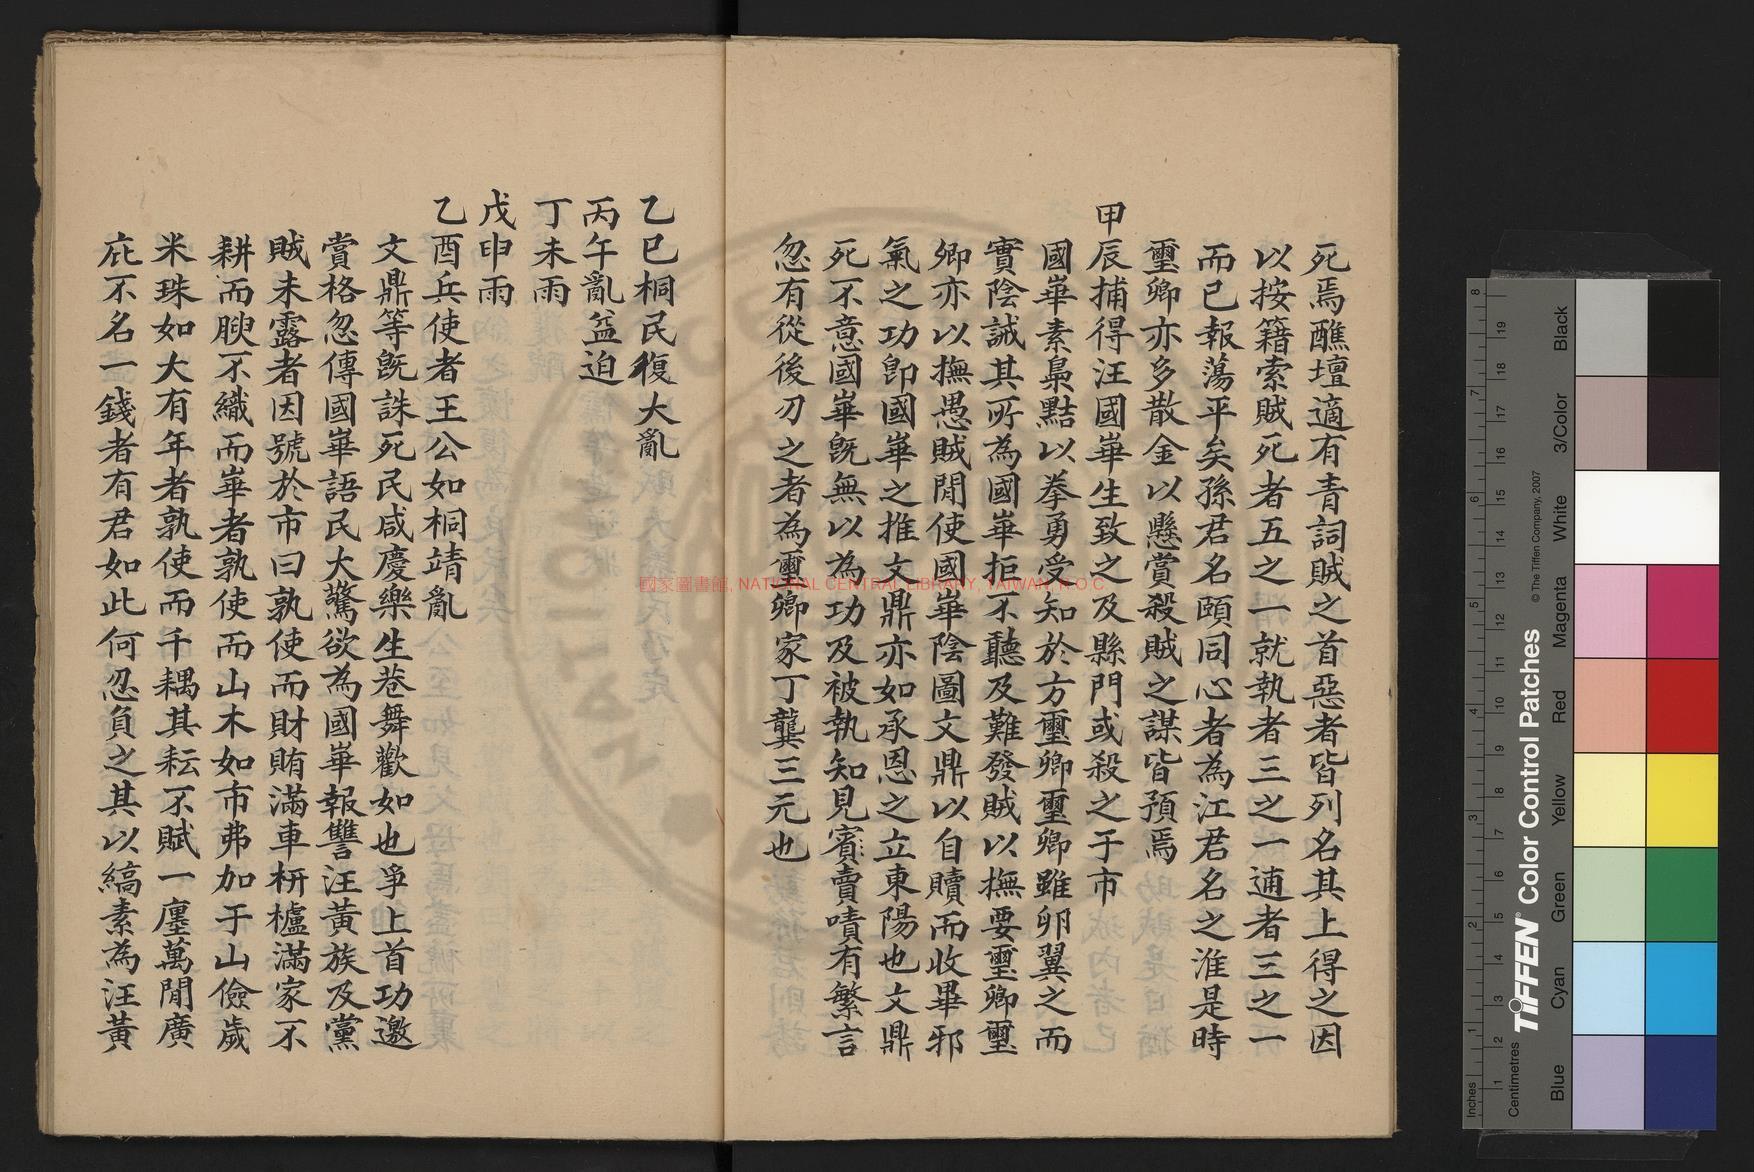 死焉醮壇適有青詞賊之首惡者皆列名其上得之因
以按籍索賊死者五之一就執者三之一逋者三之一
而已報蕩平矣孫君名頤同心者為江君名之淮是時
璽卿亦多散金以懸賞殺賊之謀皆預焉
甲辰捕得汪國崋生致之及縣門或殺之于市
國崋素梟黠以拳勇受知於方璽卿璽卿雖卵翼之而
實陰誡其所為國崋拒不聽及難發賊以撫要璽卿璽
卿亦以撫愚賊閒使國崋陰圖文鼎以自贖而收畢邪
氣之功卽國崋之推文鼎亦如承恩之立東陽也文鼎
死不意國崋旣無以為功及被執知見賓賣嘖有繁言
忽有從後刃之者為璽卿家丁龔三元也
乙巳桐民復大亂
丙午亂益迫
丁未雨
戊申雨
乙酉兵使者王公如桐靖亂
文鼎等旣誅死民咸慶樂生巷舞歡如也爭上首功邀
賞格忽傳國崋語民大驚欲為國崋報讐汪黃族及黨
賊未露者因號於市曰孰使而財賄滿車枅櫨滿家不
耕而腴不織而崋者孰使而山木如市弗加于山儉歲
米珠如大有年者孰使而千耦其耘不賦一廛萬閒廣
庇不名一錢者有君如此何忍負之其以縞素為汪黃
國家圖書館, NATIONAL CENTRAL LIBRARY, TAIWAN, R.O.C
Inches
Centimetres
TIFFEN® Color Control Patches
© The Tiffen Company, 2007
Blue
Cyan
Green
Yellow
Red
Magenta
White
3/Color
Black